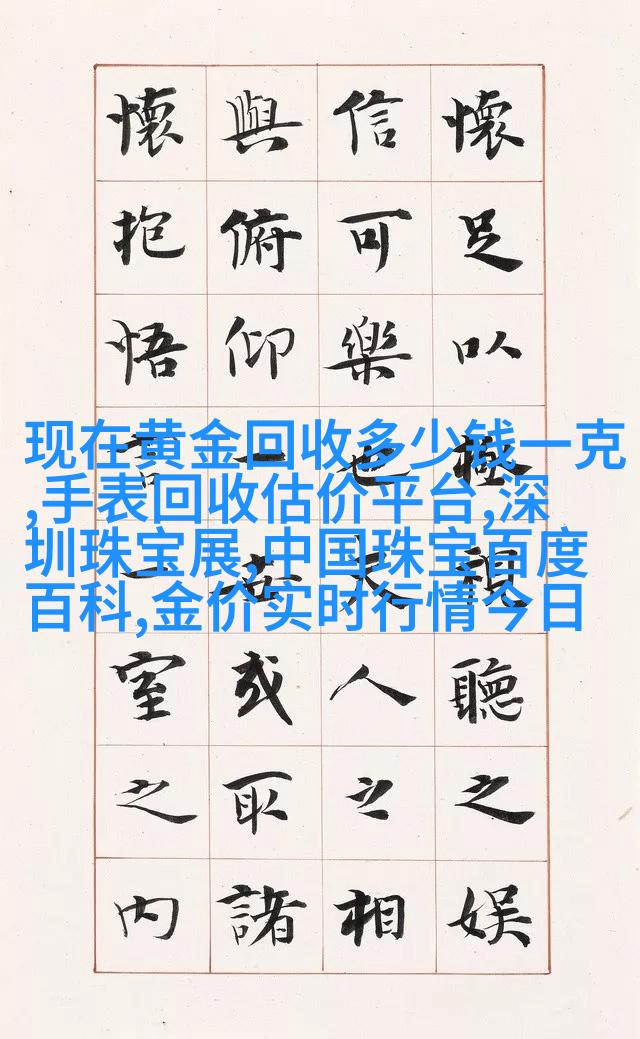 懷足以極視聽之娱
信可樂也夫人之相
與俯仰一世或取諸
懷抱悟言一室之内
现在黄金回收多少钱一克
,手表回收估价平台,深
圳珠宝展,中国珠宝百度
百科,金价实时行情今日